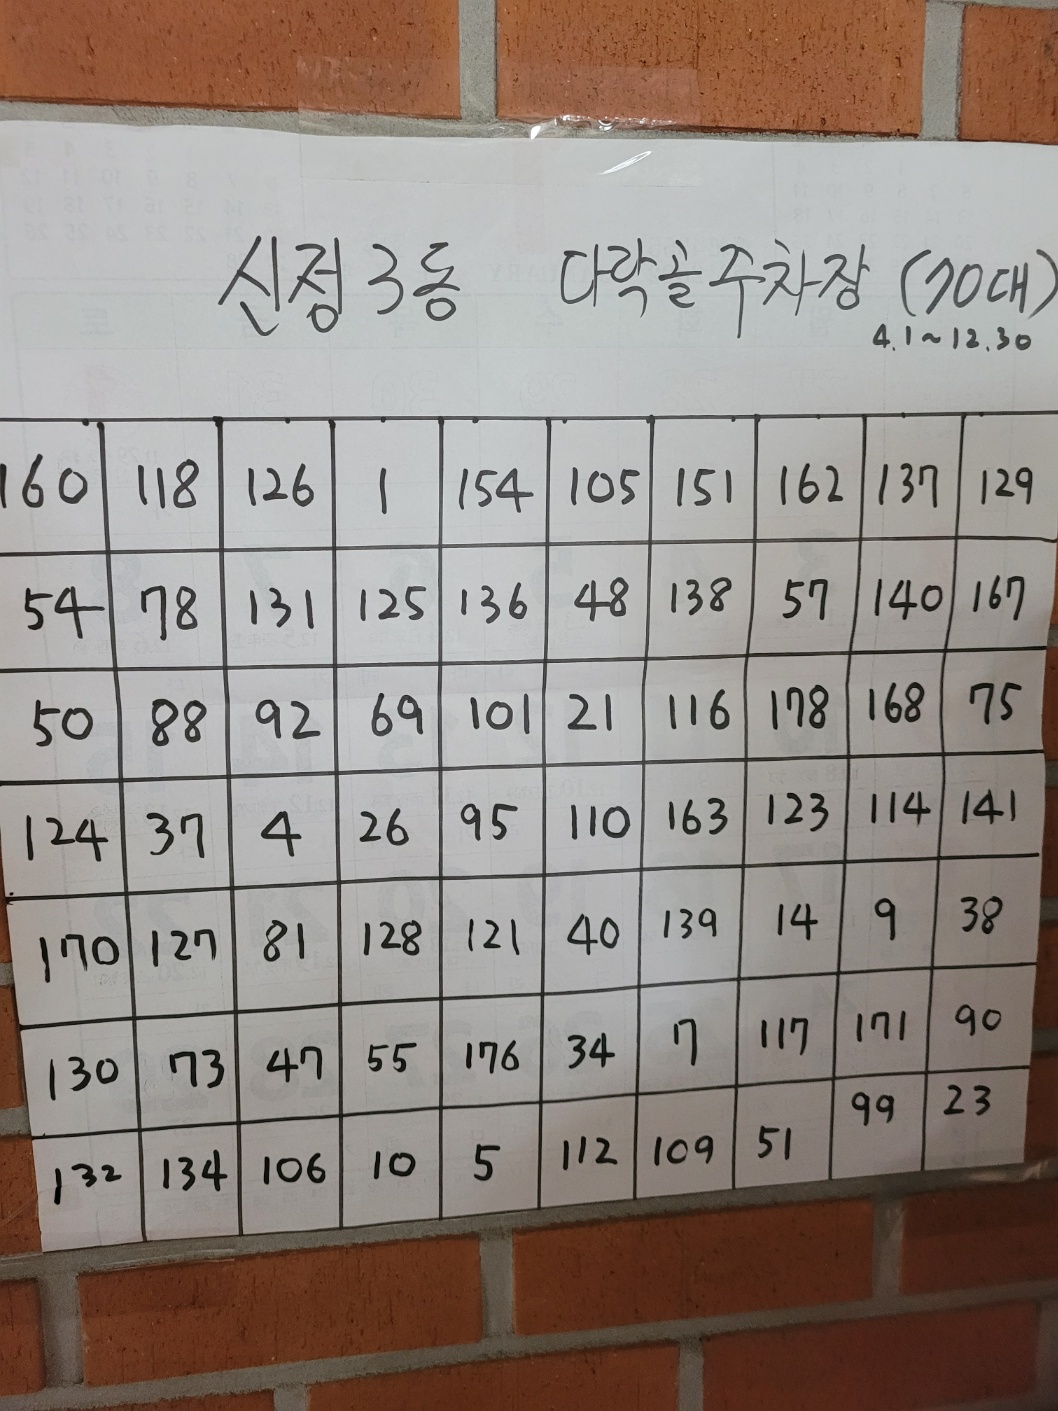 신정3동 다락골주차장 (70대)
4.1~12.30
160 118 126 1 154 105 151 162 137 129
54 78 131 125 136 48 138 57 140 167
50 88 92 69 101 21 116 178 168 75
124 37 4 26 95 110 163 123 114 141
170 127 81 128 121 40 139 14 9 38
130 73 47 55 176 34 7 117 171 90
132 134 106 10 5 112 109 51 99 23